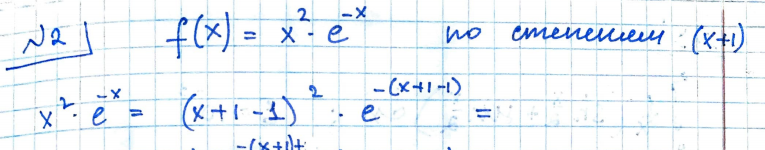 №2 f(x) = x²· e^{-x} по степеням (x+1)
x²· e^{-x} = (x+1-1)² · e^{-(x+1-1)} =
-(x+1)+